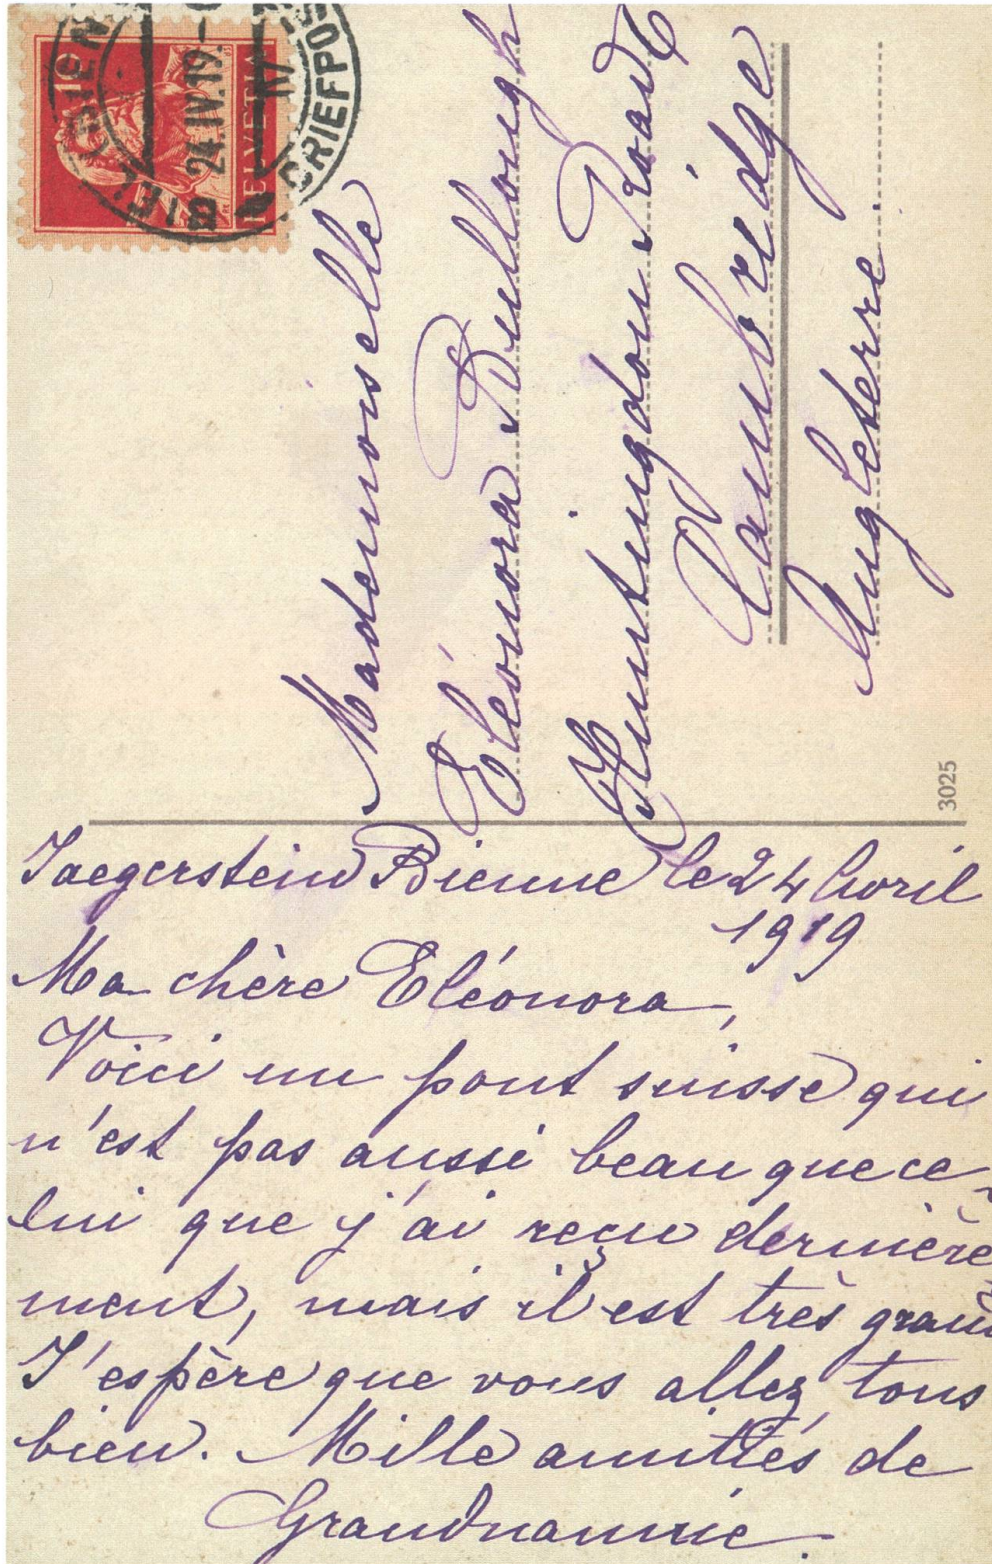 BIEL-BIENNE
24.IV.19.-
IV
BRIEFPO
10
HELVETIA
Mademoiselle
Eléonora Bullough
Huntingdon Road
Cambridge
Angleterre.
3025
Jaegerstein Bienne le 24 Avril
1919
Ma chère Eléonora,
Voici un pont suisse qui
n'est pas aussi beau que ce-
lui que j'ai reçu dernière-
ment, mais il est très grand
J'espère que vous allez tous
bien. Mille amitiés de
Grandnannie.